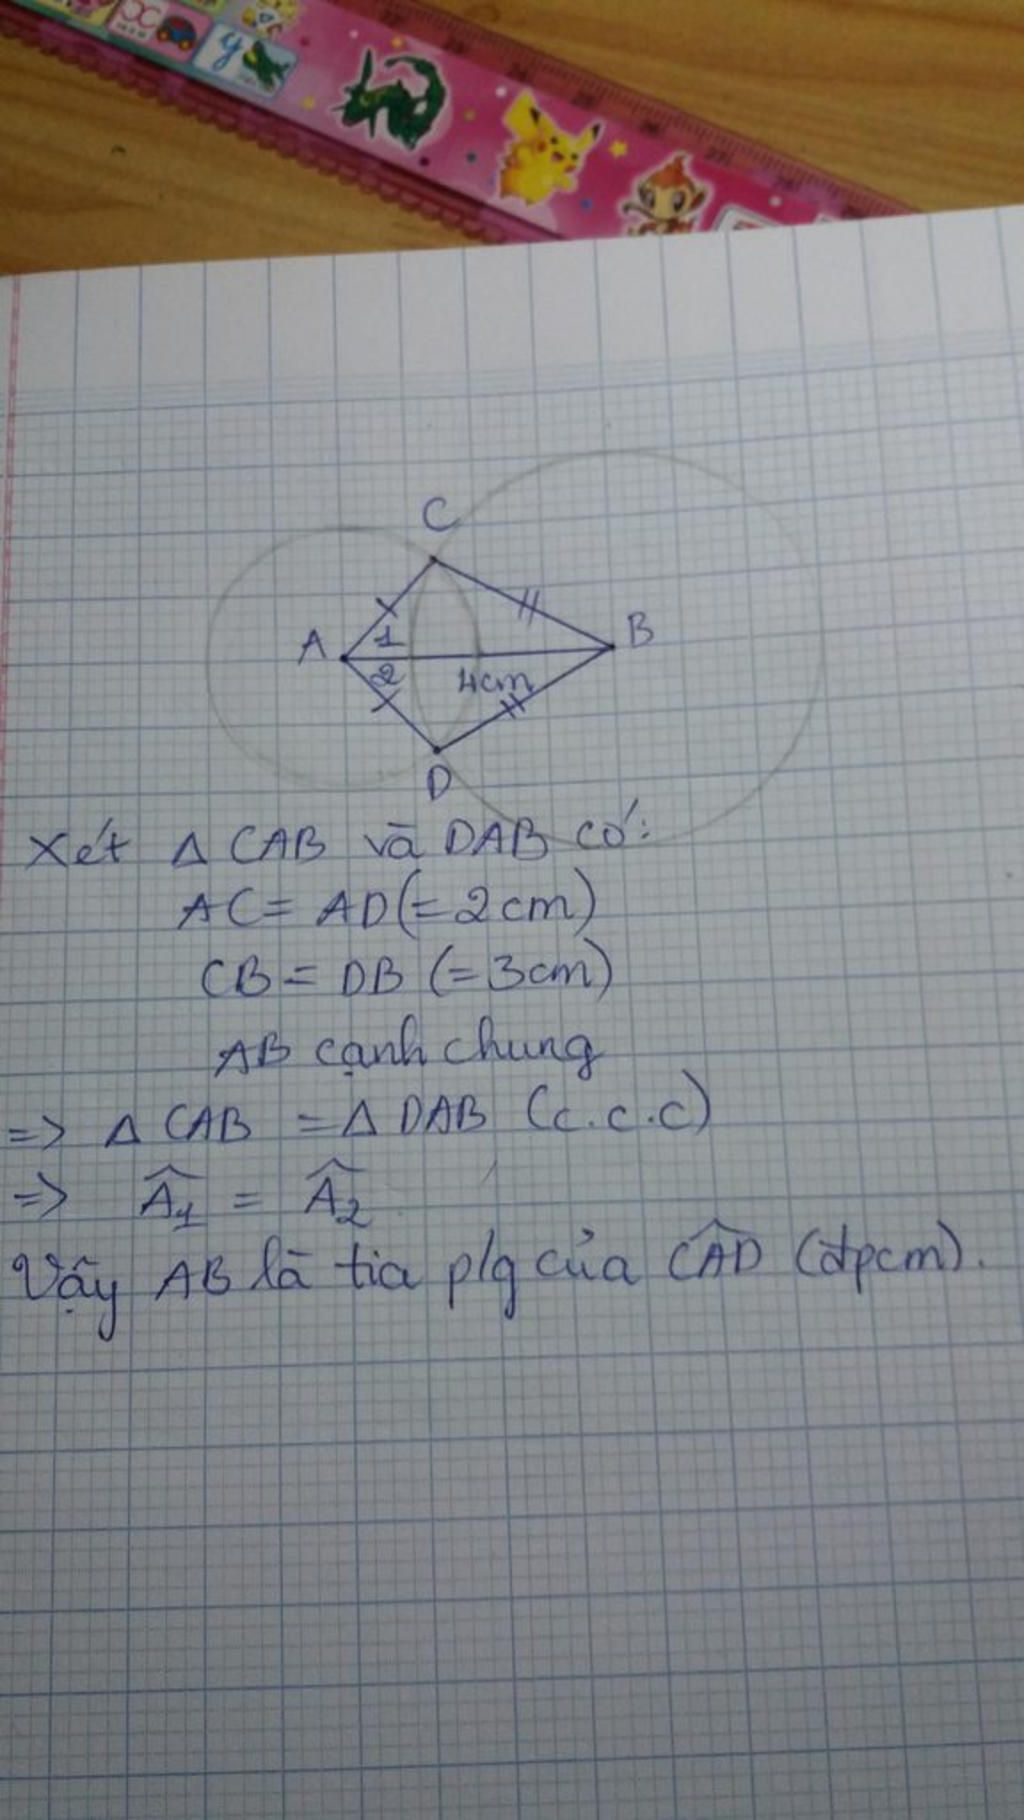 y
C
A
1
B
2
4cm
D
Xét Δ CAB và DAB có:
AC = AD (= 2cm)
CB = DB (= 3cm)
AB cạnh chung
=> Δ CAB = Δ DAB (c.c.c)
=> Â₁ = Â₂
Vậy AB là tia p/g của CÂD (đpcm).